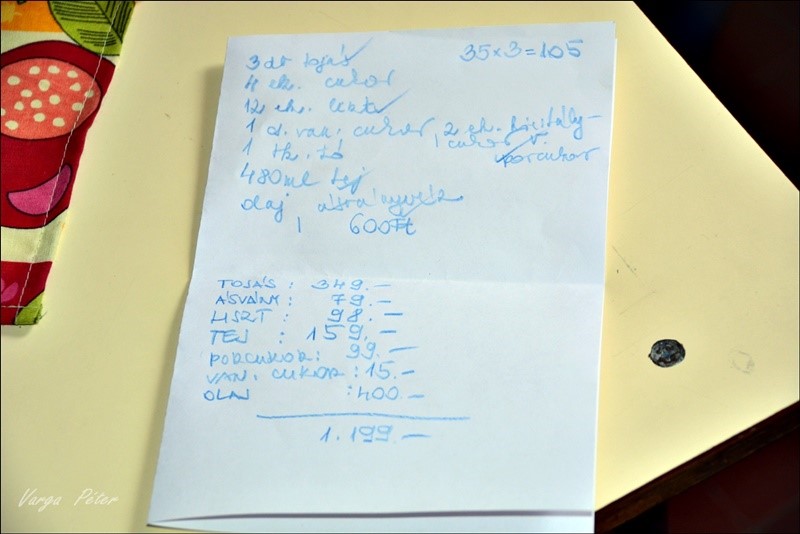 3 db tojás 35x3=105
4 ek. cukor
12 ek. liszt
1 cs. van. cukor, 2 ek. kristály-
1 tk. só cukor v.
porcukor
480ml tej
olaj, ásványvíz
600Ft
TOJÁS: 349.-
ÁSVÁNY: 79.-
LISZT: 98.-
TEJ: 159.-
PORCUKOR: 99.-
VAN. CUKOR: 15.-
OLAJ :400.-
1.199.-
Varga Péter